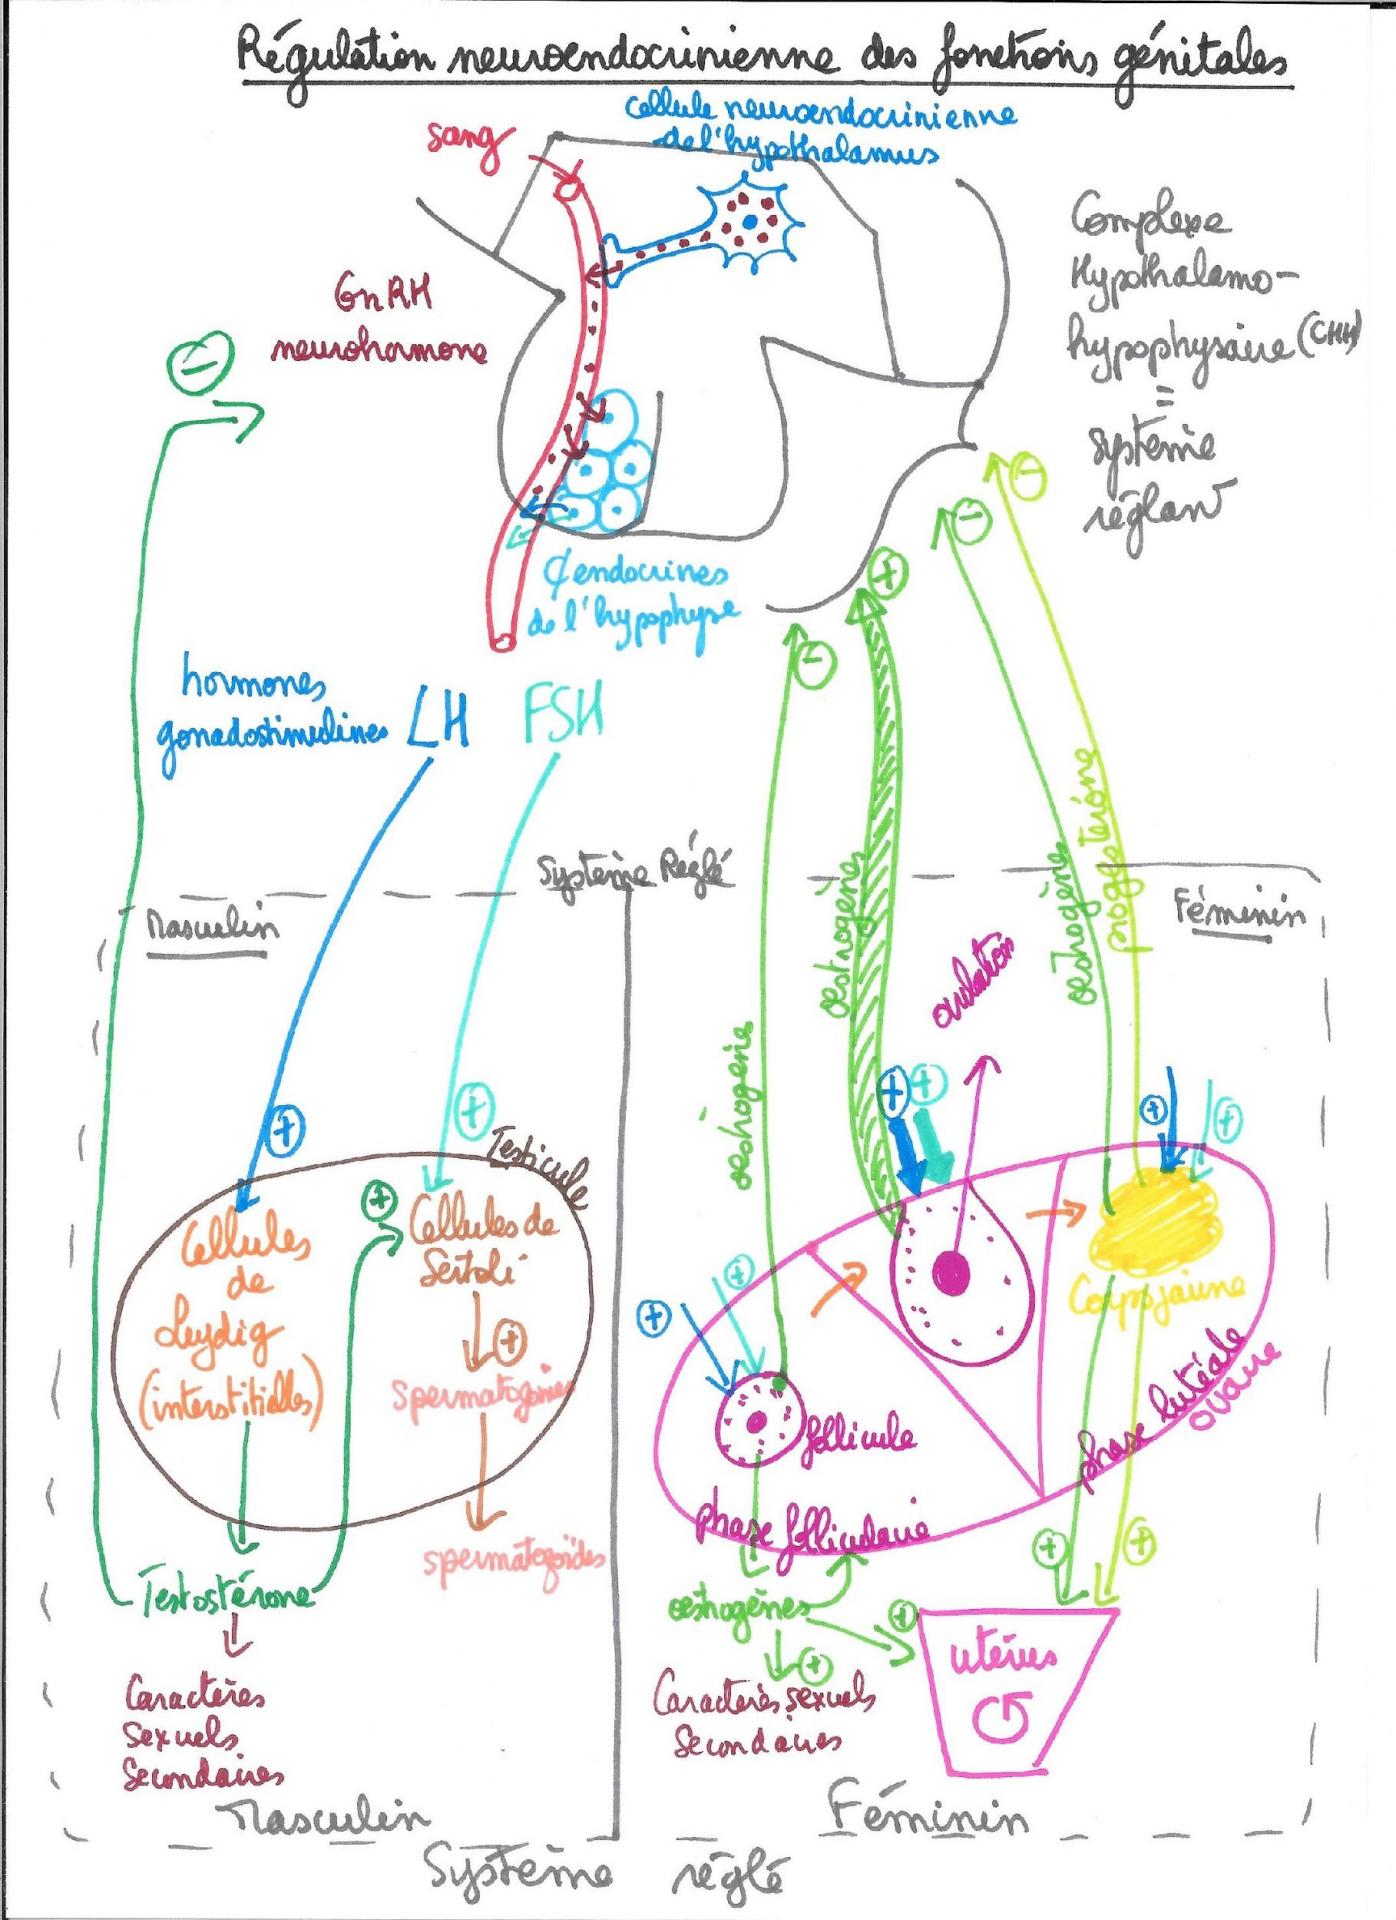 Régulation neuroendocrinienne des fonctions génitales
cellule neuroendocrinienne
de l'hypothalamus
sang
Complexe
Hypothalamo-
hypophysaire (CHH)
=
système
réglant
GnRH
neurohormone
-
-
-
+
-
¢ endocrines
de l'hypophyse
hormones
gonadostimulines
LH
FSH
Système Réglé
Masculin
Féminin
oestrogène
oestrogènes
oestrogènes
progestérone
ovulation
+
+
+
+
+
+
Testicule
+
Cellules
de
Leydig
(interstitielles)
Cellules de
Sertoli
+
spermatogénèse
spermatozoïdes
Testostérone
Caractères
Sexuels
Secondaires
+
+
follicule
phase folliculaire
Corps jaune
phase lutéale
ovaire
oestrogènes
+
+
+
+
Caractères sexuels
Secondaires
utérus
Masculin
Féminin
Système réglé